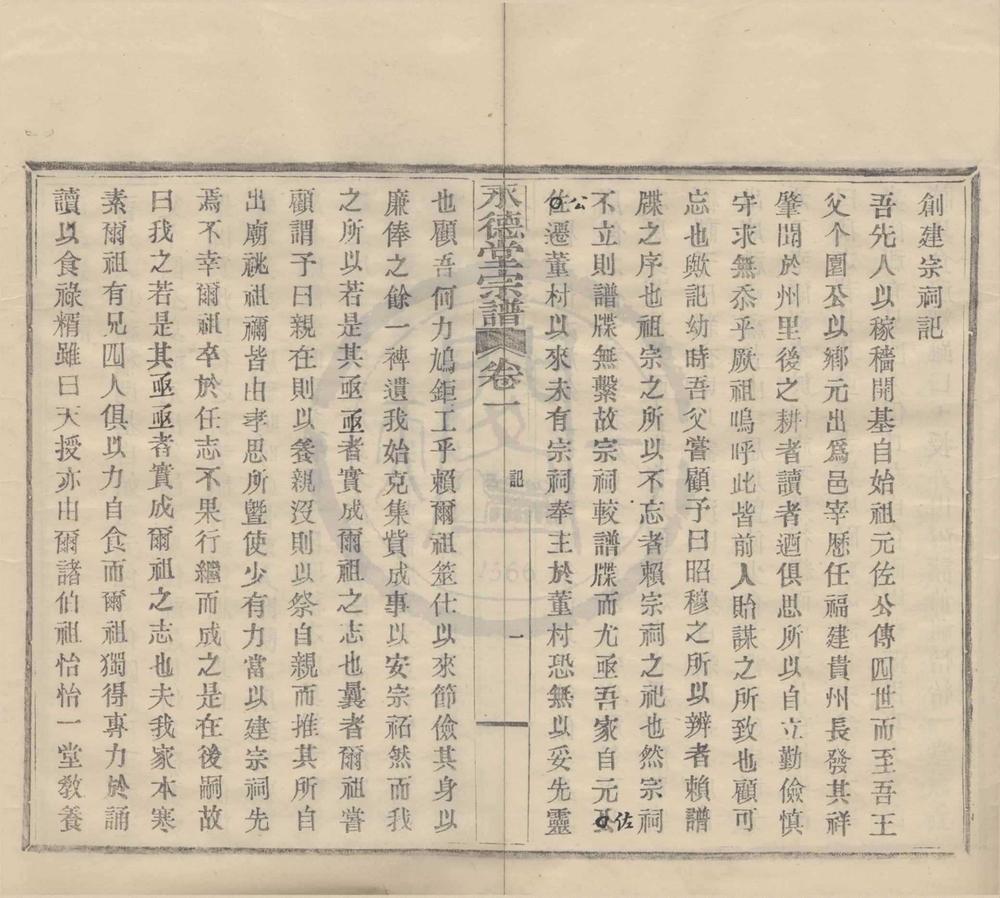 創建宗祠記
吾先人以稼穡開基自始祖元佐公傳四世而至吾王
父个園公以鄉元出爲邑宰歷任福建貴州長發其祥
肇聞於州里後之耕者讀者迺俱思所以自立勤儉愼
守求無忝乎厥祖嗚呼此皆前人貽謀之所致也顧可
忘也歟記幼時吾父嘗顧予曰昭穆之所以辨者賴譜
牒之序也祖宗之所以不忘者賴宗祠之祀也然宗祠
不立則譜牒無繫故宗祠較譜牒而尤亟吾家自元佐
公遷董村以來未有宗祠奉主於董村恐無以妥先靈
永德堂宗譜 卷一 記 一
也顧吾何力鳩鉅工乎賴爾祖筮仕以來節儉其身以
廉俸之餘一裨遺我始克集貲成事以安宗祏然而我
之所以若是其亟亟者實成爾祖之志也曩者爾祖嘗
顧謂予曰親在則以養親沒則以祭自親而推其所自
出廟祧祖禰皆由孝思所曁使少有力當以建宗祠先
焉不幸爾祖卒於任志不果行繼而成之是在後嗣故
曰我之若是其亟亟者實成爾祖之志也夫我家本寒
素爾祖有兄四人俱以力自食而爾祖獨得專力於誦
讀以食祿糈雖曰天授亦由爾諸伯祖怡怡一堂敎養